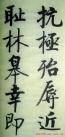 殆辱近恥
林皋幸即
抗極